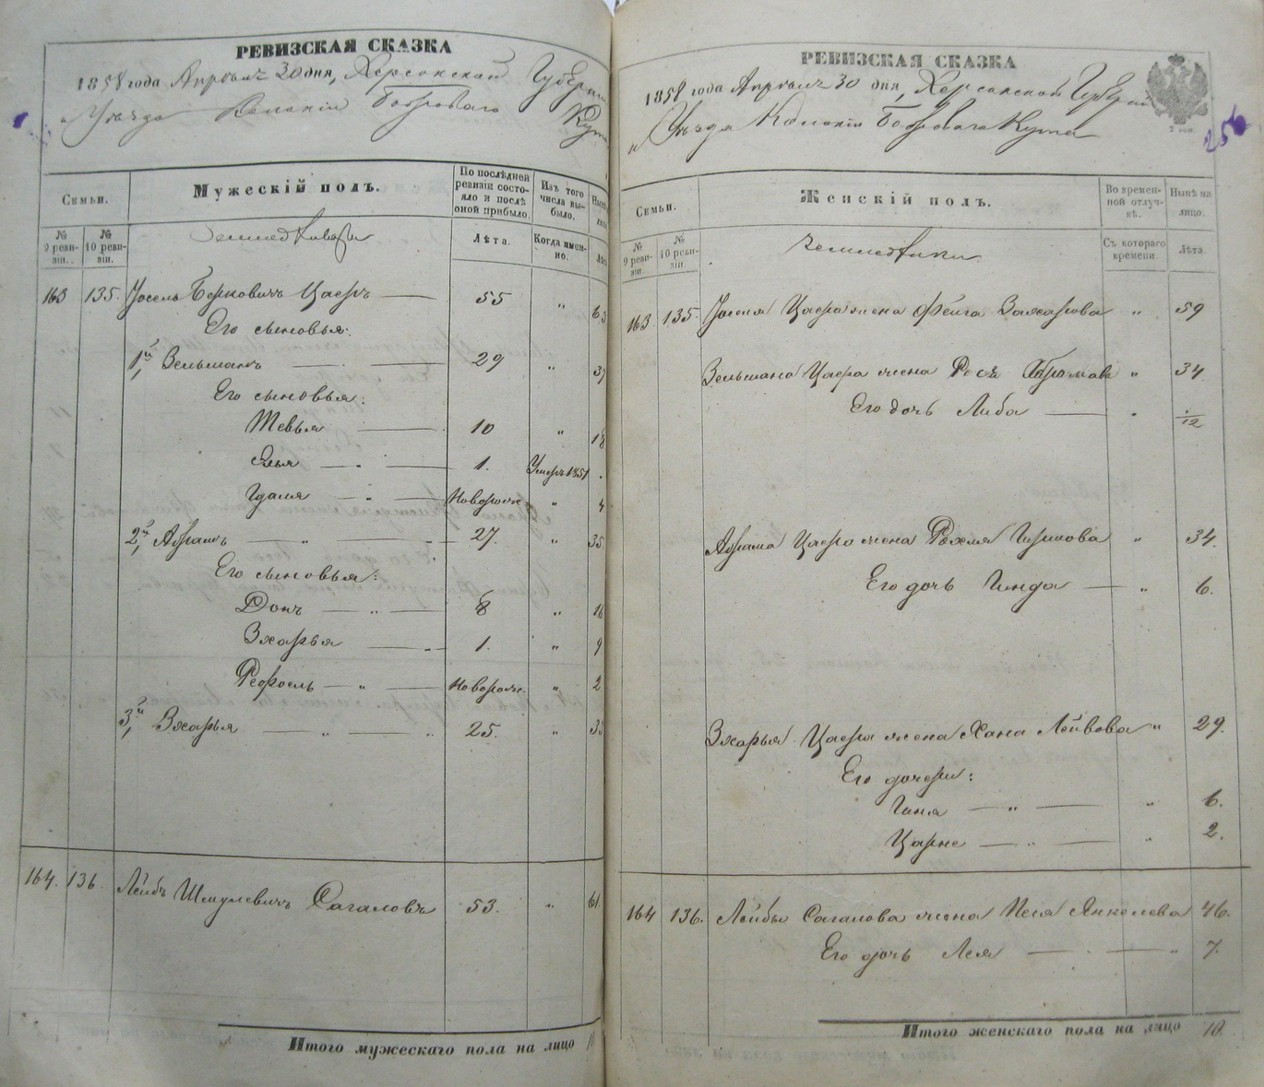 РЕВИЗСКАЯ СКАЗКА
1858 года Апреля 30 дня, Херсонской Губернии
и Уезда Колонии Бобрового Кута
Семьи.
Мужескій полъ.
По послѣдней ревизіи состояло и послѣ оной прибыло.
Изъ того числа выбыло.
№ 9 ревизіи.
№ 10 ревизіи.
Лѣта.
Когда именно.
163 135. Іосель Берковичъ Цаеръ — 55 „ 63
Его сыновья:
1й, Зельманъ — 29 „ 37
Его сыновья:
Тевья — 10 „ 18
1. Умеръ 1851
Гдалья — „ — Новорожд. „ 4
2й, Абрамъ — „ — 27. „ 35
Его сыновья:
— „ — 8 „ 16
Зхарья — 1. „ 9
Рефоель — „ — Новорожд. „ 2
3й, Зхарья — „ — 25. „ 33
164. 136. Лейбъ Шмулевичъ Сагаловъ 53. „ 61.
Итого мужескаго пола на лицо
РЕВИЗСКАЯ СКАЗКА
1858 года Апреля 30 дня, Херсонской Губерніи
и Уезда Колоніи Бобрового Кута
256
Семьи.
Женскій полъ.
Во временной отлучкѣ.
Нынѣ на лицо.
№ 9 ревизіи.
№ 10 ревизіи.
Земледѣлки
Съ котораго времени.
Лѣта.
163. 135. Іоселя Цаера жена Фейга Захарова „ 59
Зельмана Цаера жена Абрамова „ 34.
Его дочь Либа — „ 1/12
Абрама Цаера жена Рохля Гиршова „ 34.
Его дочь Гинда — „ 6.
Зхарья Цаера жена Хана Лейбова „ 29.
Его дочери:
Гиня — „ — „ 6.
Царне — „ — „ 2.
164 136. Лейбы Сагалова жена Песя Янкелева 46.
Его дочь Лея — „ 7.
Итого женскаго пола на лицо 10.